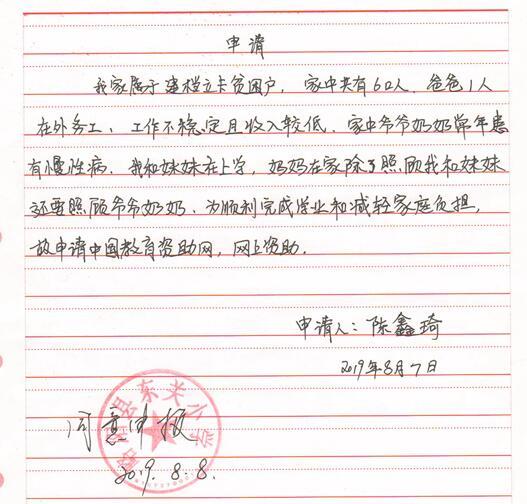 申请
我家属于建档立卡贫困户，家中共有6口人，爸爸1人
在外务工、工作不稳定且收入较低、家中爷爷奶奶常年患
有慢性病、我和妹妹在上学，妈妈在家除了照顾我和妹妹
还要照顾爷爷奶奶、为顺利完成学业和减轻家庭负担，
故申请中国教育资助网，网上资助.
申请人：陈鑫琦
2019年8月7日
县东关小学
同意申报
2019.8.8.